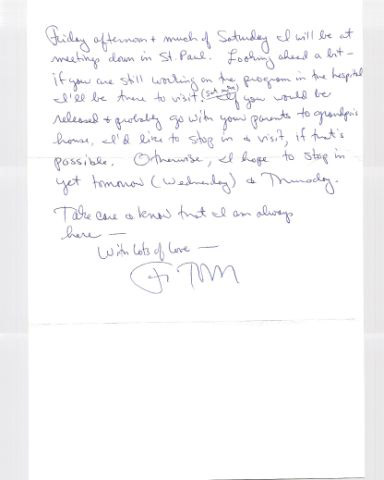 Friday afternoon + much of Saturday I will be at
meetings down in St. Paul. Looking ahead a bit –
if you are still working on the program in the hospital
I'll be there to visit. If you would be
released + probably go with your parents to grandpa's
house, I'd like to stop in + visit, if that's
possible. Otherwise, I hope to stop in
yet tomorrow (Wednesday) or Thursday.
Take care + know that I am always
here —
With lots of love —
Fr. Tom